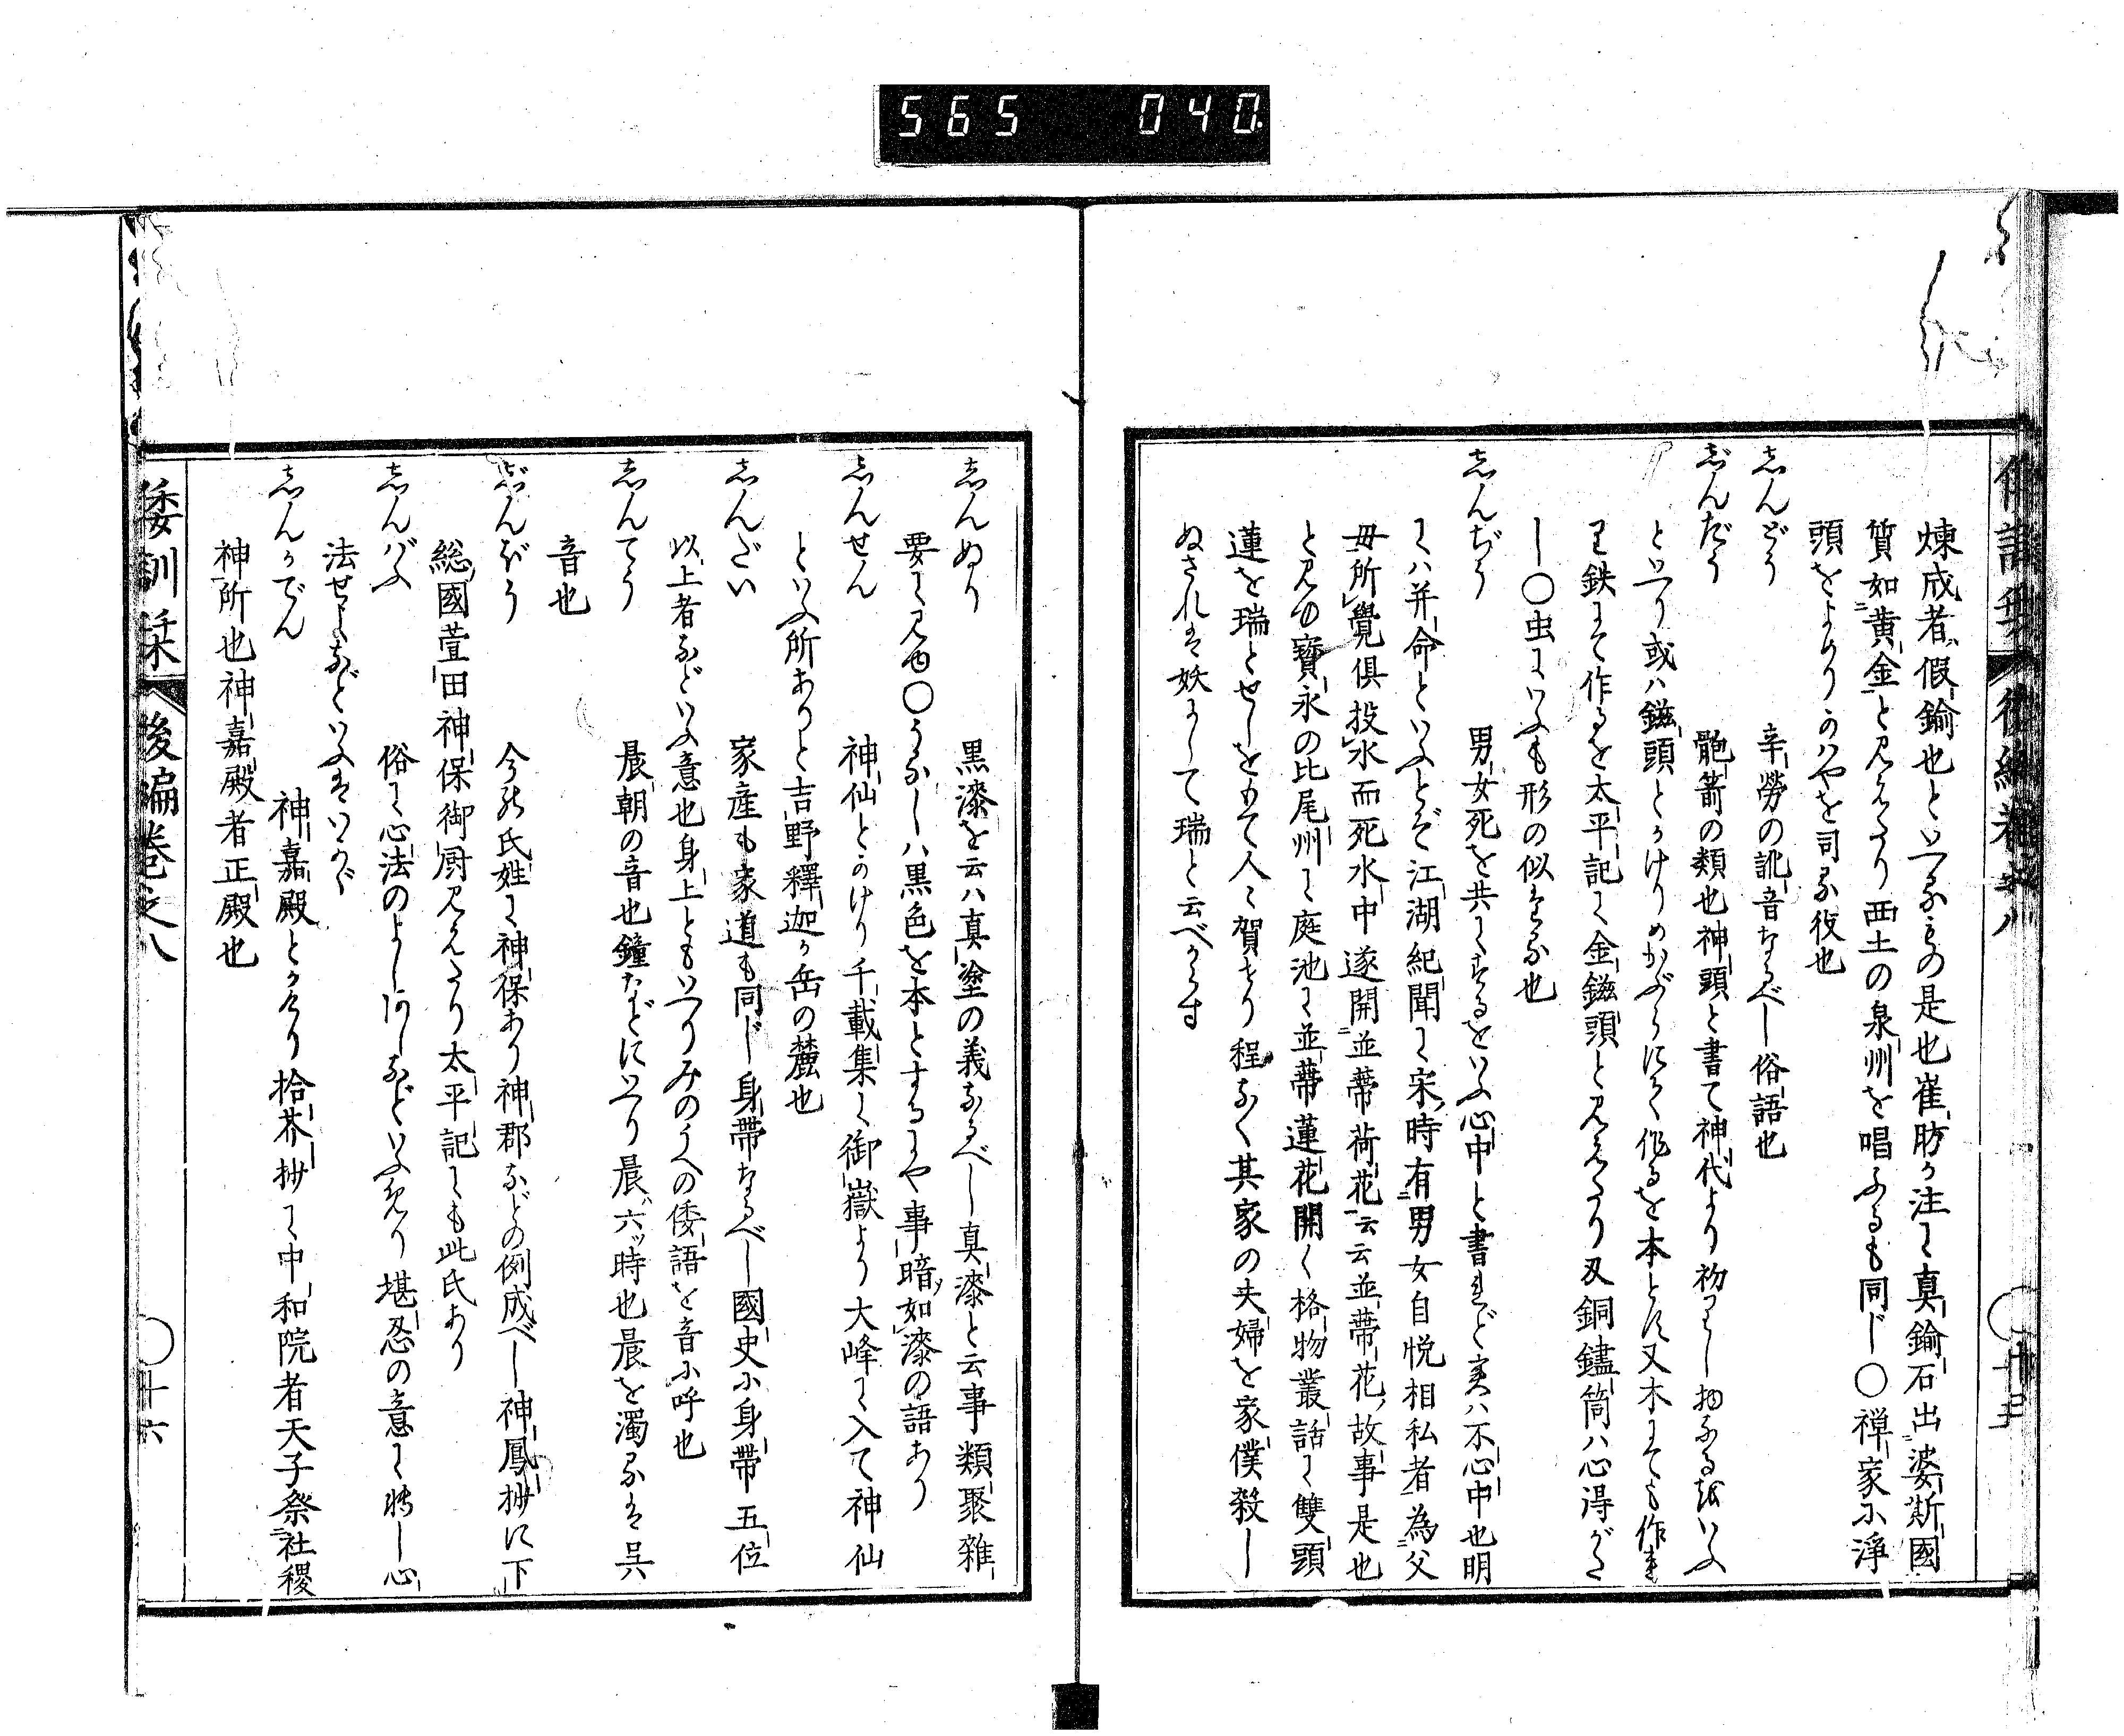 565 040
煉成者假鍮也といへるもの是也崔昉か注に真鍮石出婆斯國
質如黄金と見えたり西土の泉州を唱ふるも同じ〇禅家に淨
頭をよめりかはやを司る役也
志んどう 辛勞の訛音なるべし俗語也
志゛んだう 骲箭の類也神頭と書て神代より初りし物なる故いふ
といへり或ハ鏃頭とかけりめかぶらにく作るを本とす又木にても作れ
り鉄にて作るを太平記に金鏃頭と見えたり又銅鏽筒ハ心得がた
し〇虫にいふも形の似たる也
志んぢう 男女死を共にするをいふ心中と書れど実ハ不心中也明
にハ并命といふとぞ江湖紀聞に宋時有男女自悦相私者為父
毋所覺俱投水而死水中遂開並蔕荷花云云並蔕花故事是也
と見ゆ寳永の比尾州に庭池に並蔕蓮花開く格物叢話に雙頭
蓮を瑞とせしをもて人々賀せり程なく其家の夫婦を家僕殺し
ぬされは妖にして瑞と云べからす
志んぬり 黒漆を云ハ真塗の義なるべし真漆と云事類聚雜
要に見ゆ〇うるしハ黒色を本とするにや事暗如漆の語あり
志んせん 神仙とかけり千載集に御嶽より大峰に入て神仙
といふ所ありと吉野釋迦か岳の麓也
志んだい 家産も家道も同じ身帶なるべし國史に身帶五位
以上者などいふ意也身上ともいへりみのうへの倭語を音に呼也
志んてう 晨朝の音也鐘などにいへり晨ハ六ッ時也晨を濁るは呉
音也
志゛んぼう 今の氏姓に神保あり神郡などの例成べし神鳳抄に下
総國萱田神保御厨見えたり太平記にも此氏あり
志んバふ 俗に心法のよしあしなどいふあり堪忍の意に轉し心
法せよなどいふはいかゞ
志んかでん 神嘉殿とかけり拾芥抄に中和院者天子祭社稷
神所也神嘉殿者正殿也
倭訓栞 後編巻之八 〇十六